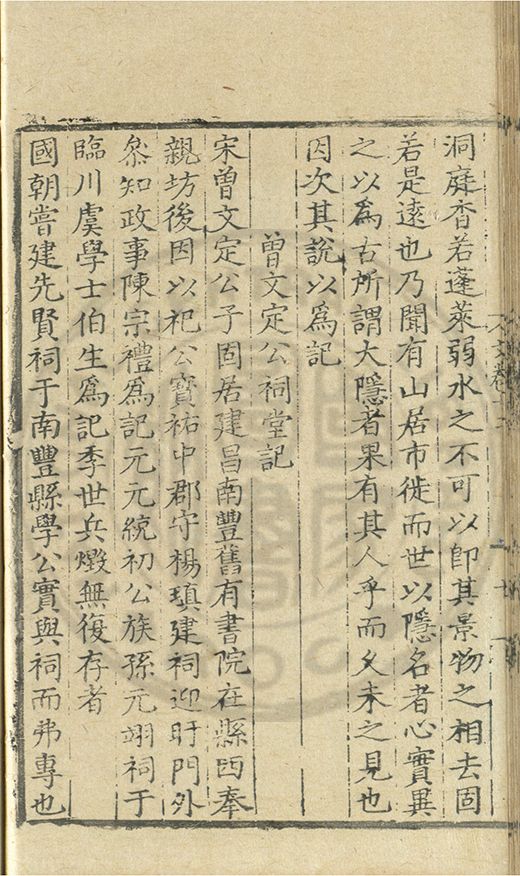 洞庭杳若蓬萊弱水之不可以卽其景物之相去固
若是遠也乃聞有山居市徙而世以隱名者心實異
之以爲古所謂大隱者果有其人乎而文未之見也
因次其說以爲記
曾文定公祠堂記
宋曾文定公子固居建昌南豐舊有書院在縣西奉
親坊後因以祀公寶祐中郡守楊瑱建祠迎盱門外
叅知政事陳宗禮爲記元元統初公族孫元翊祠于
臨川虞學士伯生爲記季世兵燬無復存者
國朝嘗建先賢祠于南豐縣學公實與祠而弗專也